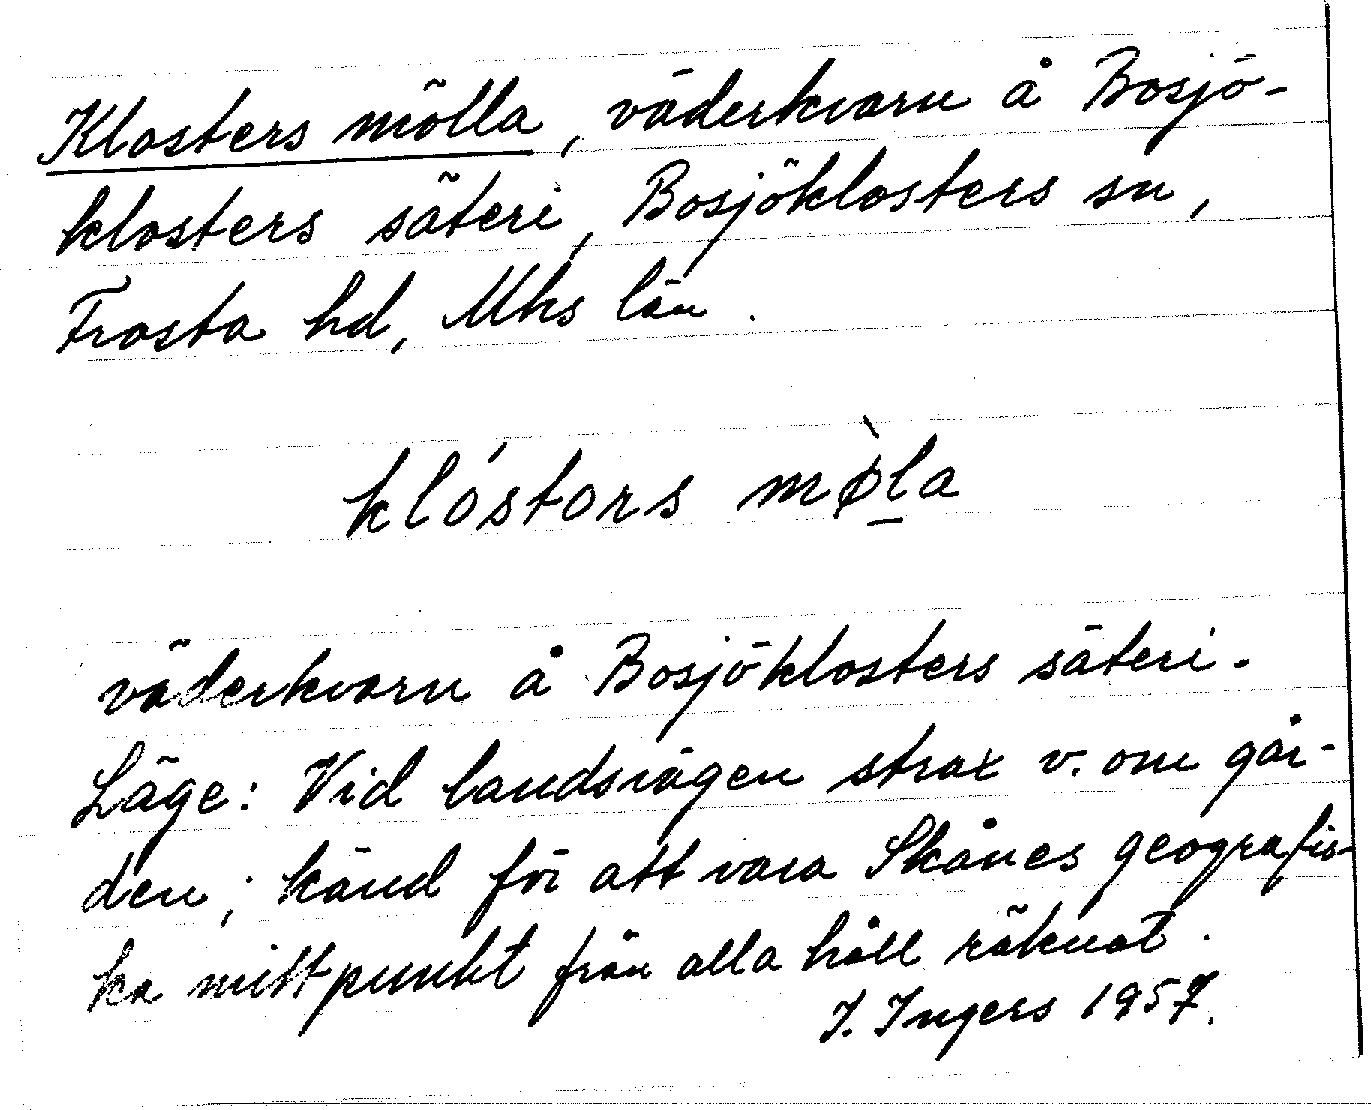 Klosters mölla, väderkvarn å Bosjö-
klosters säteri, Bosjöklosters sn,
Frosta hd, Mhs län.
klóstors mø̀la
väderkvarn å Bosjöklosters säteri.
Läge: Vid landsvägen strax v. om går-
den; känd för att vara Skånes geografis-
ka mittpunkt från alla håll räknat.
I. Ingers 1957.